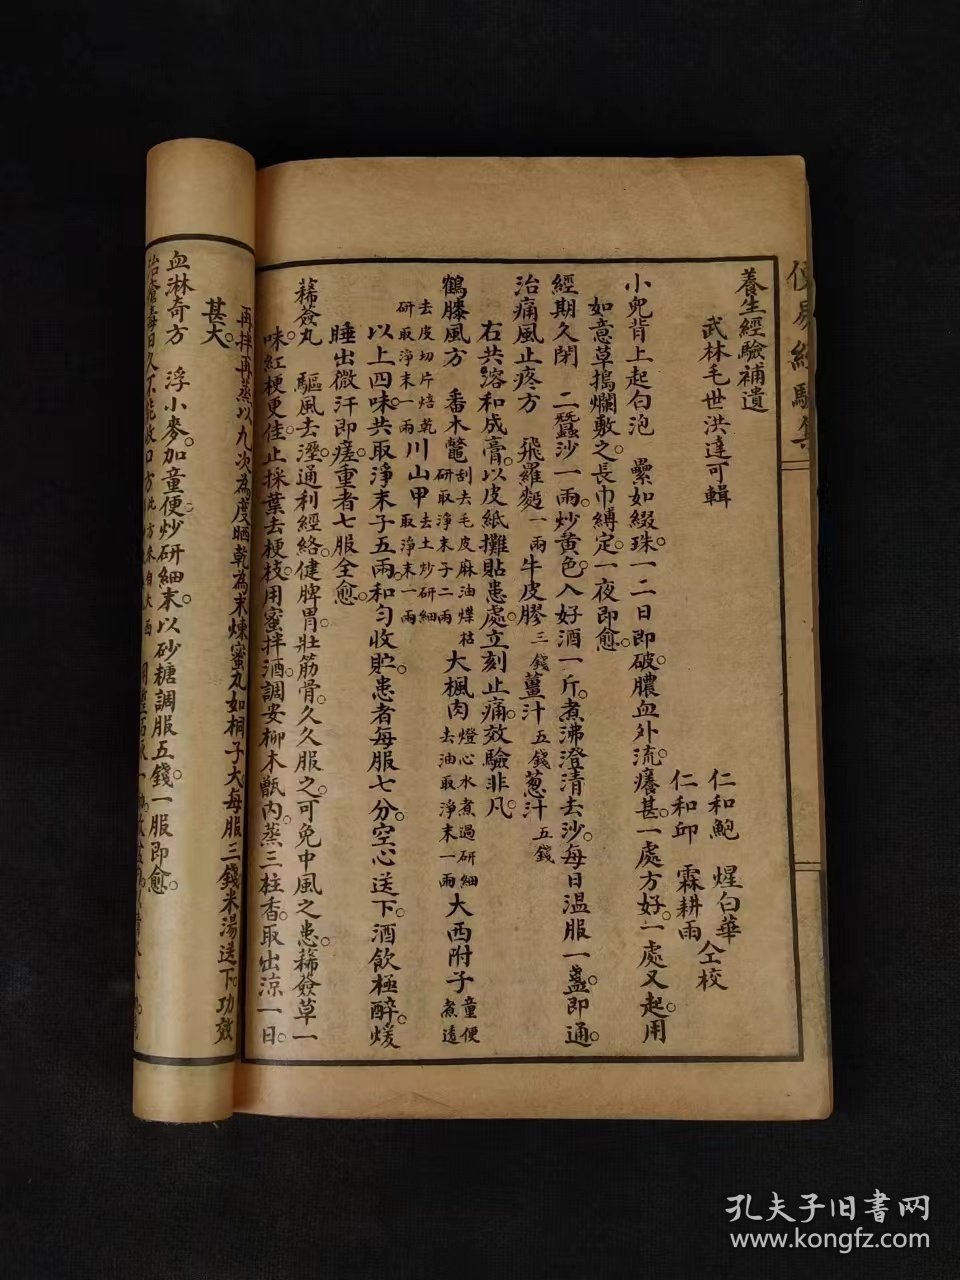 便易經驗集
養生經驗補遺
武林毛世洪達可輯
仁和鮑 煋白華
仁和邱 霖耕雨
仝校
小兒背上起白泡 纍如綴珠一二日即破。膿血外流。癢甚。一處方好。一處又起。用
如意草搗爛敷之。長巾縛定。一夜即愈。
經期久閉 二蠶沙一兩。炒黄色。入好酒一斤。煮沸澄清去沙。每日温服一盞。即通。
治痛風止疼方 飛羅麪一兩牛皮膠三錢薑汁五錢葱汁五錢
右共溶和成膏。以皮紙攤貼患處。立刻止痛。效驗非凡。
鶴膝風方 番木鼈刮去毛皮麻油煠枯研取淨末子二兩大楓肉燈心水煮過研細去油取淨末一兩大西附子童便煮透
去皮切片焙乾研取淨末一兩川山甲去土炒研細取淨末一兩
以上四味。共取淨末子五兩。和匀收貯。患者每服七分。空心送下。酒飲極醉。煖
睡出微汗即瘥。重者七服全愈。
豨薟丸 驅風去溼。通利經絡。健脾胃。壯筋骨。久久服之。可免中風之患。豨薟草一
味。紅梗更佳。止採葉去梗枝。用蜜拌。酒調。安柳木甑内。蒸三柱香。取出涼一日。
再拌再蒸以九次為度晒乾為末煉蜜丸如桐子大每服三錢米湯送下。功效
甚大。
血淋奇方 浮小麥。加童便炒研細末。以砂糖調服五錢一服即愈。
孔夫子旧书网
www.kongfz.com